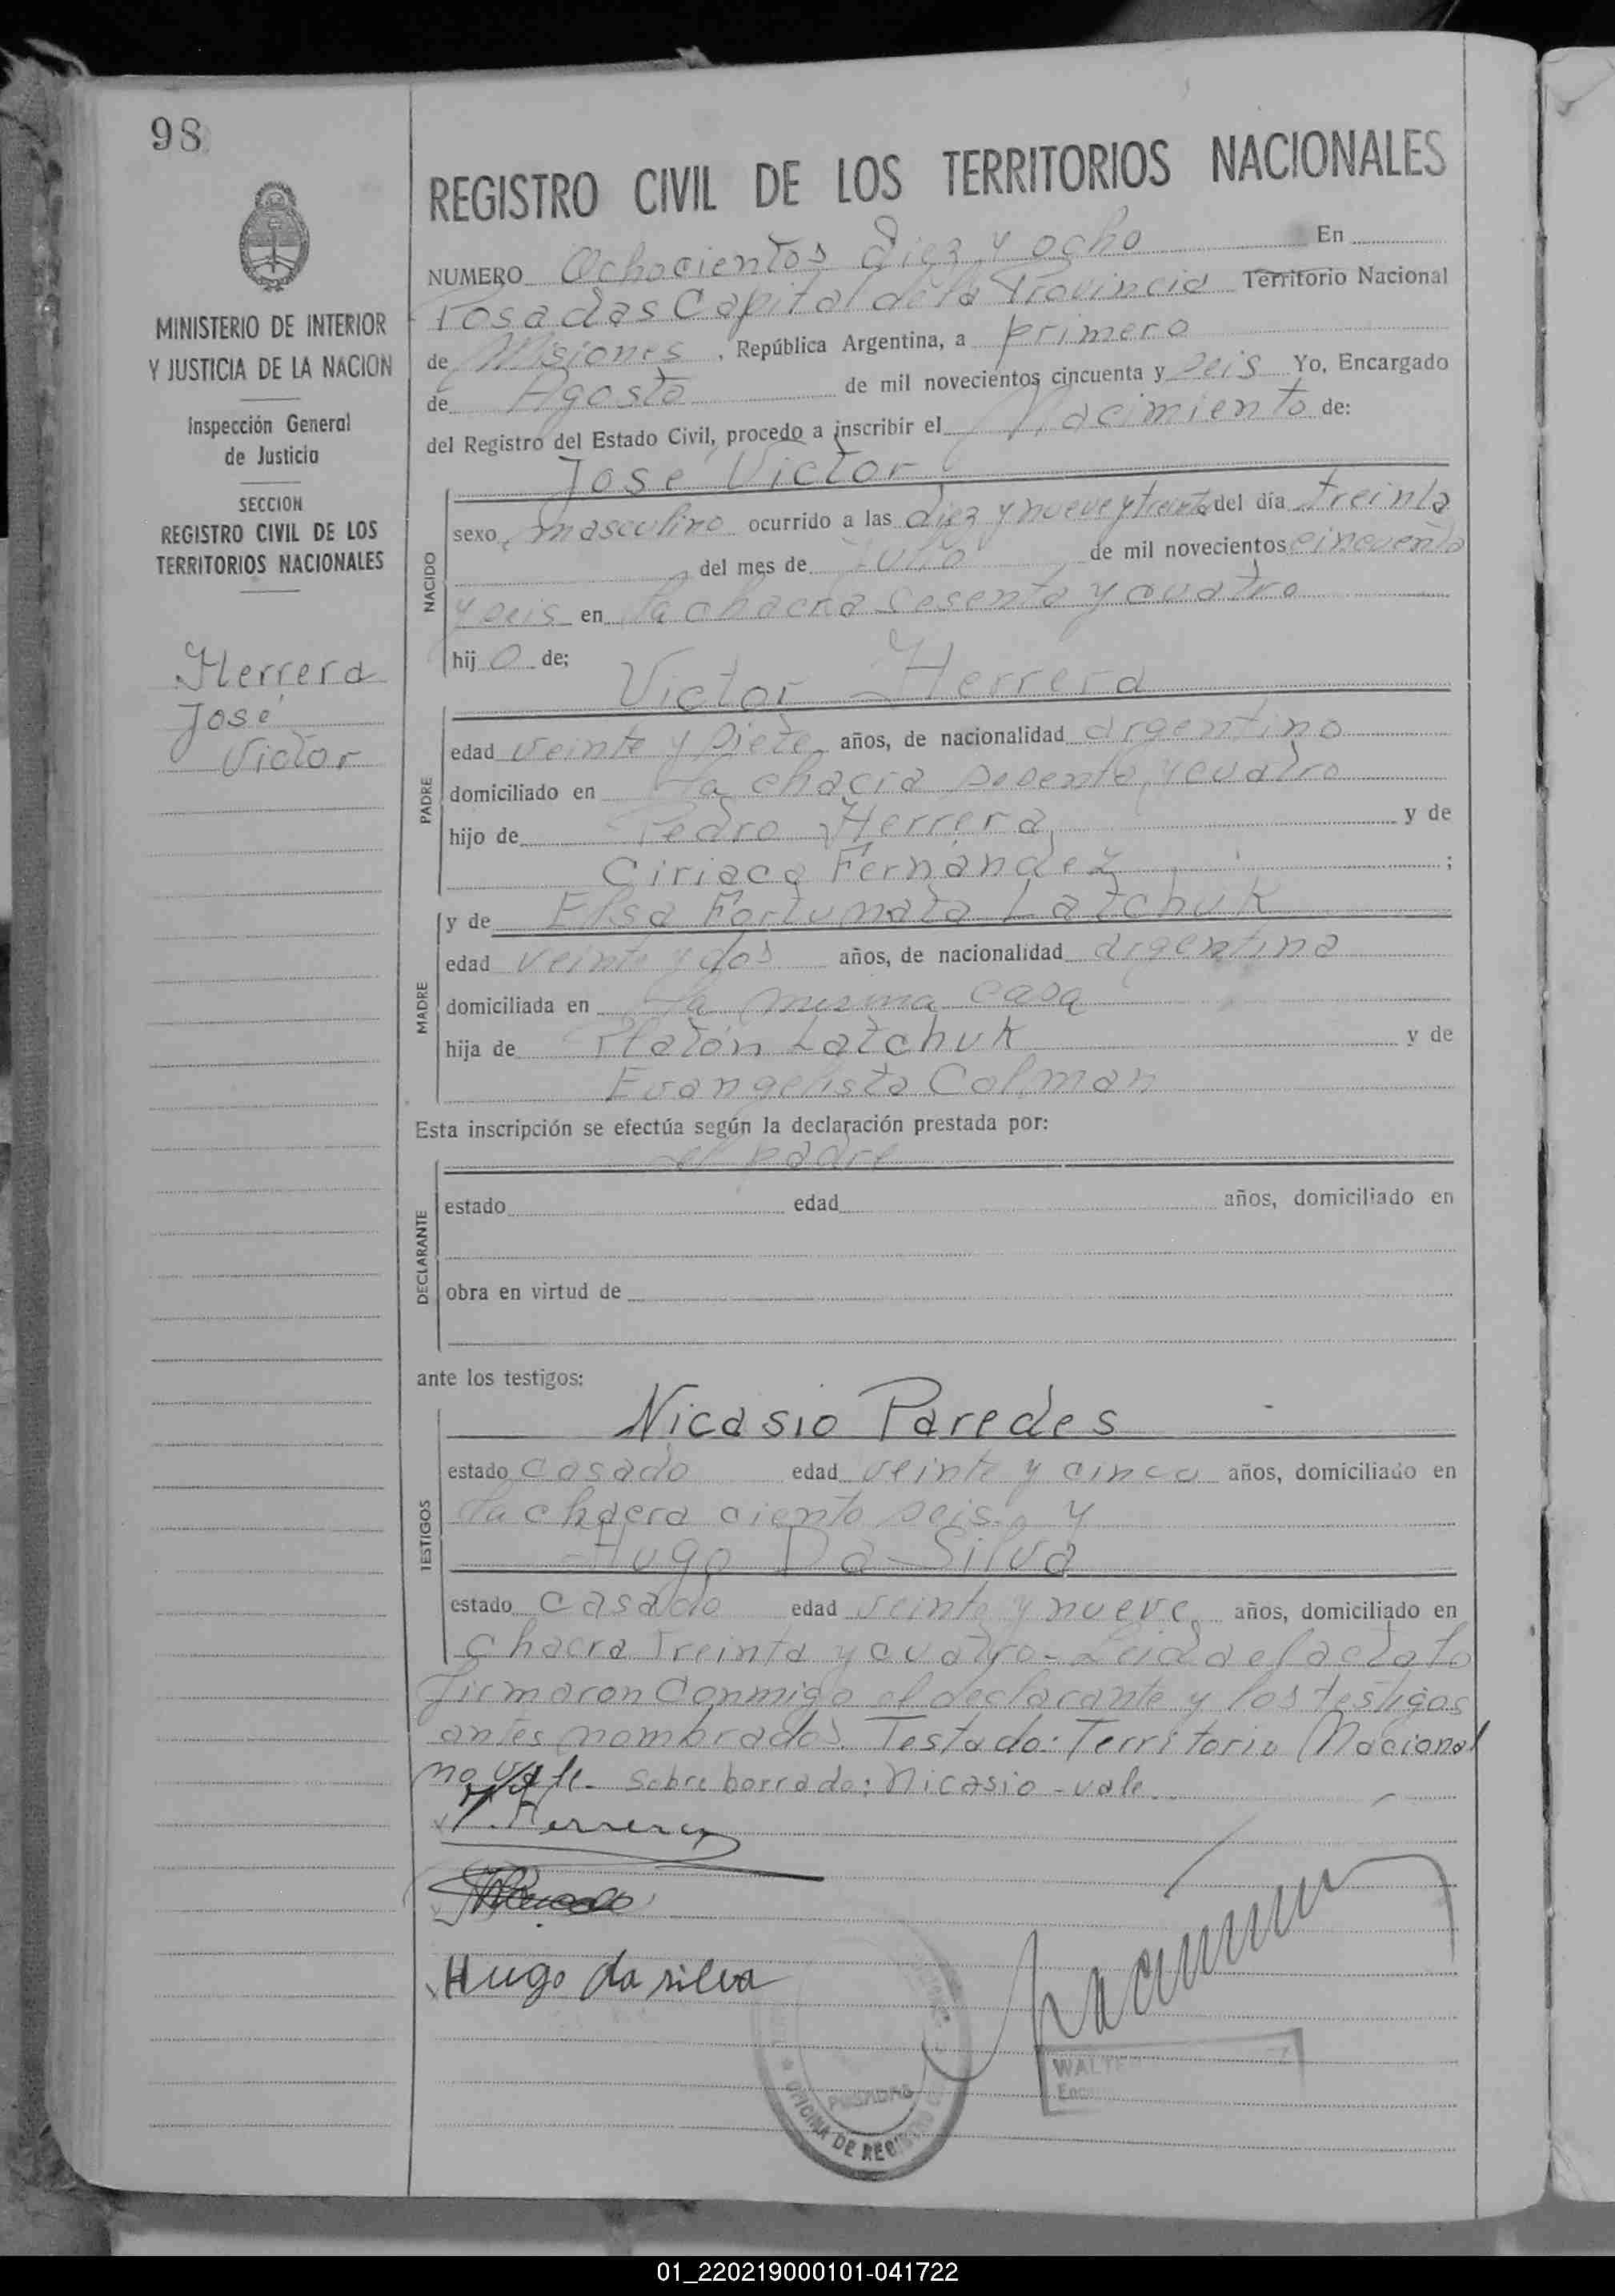 98
MINISTERIO DE INTERIOR
Y JUSTICIA DE LA NACION
Inspección General
de Justicia
SECCION
REGISTRO CIVIL DE LOS
TERRITORIOS NACIONALES
Herrera
José
Victor
REGISTRO CIVIL DE LOS TERRITORIOS NACIONALES
NUMERO Ochocientos diez y ocho En
Posadas Capital de la Provincia Territorio Nacional
de Misiones, República Argentina, a primero
de Agosto de mil novecientos cincuenta y seis Yo, Encargado
del Registro del Estado Civil, procedo a inscribir el Nacimiento de:
José Victor
NACIDO
sexo masculino ocurrido a las diez y nueve y treinta del día treinta
del mes de Julio de mil novecientos cincuenta
y seis en la chacra sesenta y cuatro
hijo de;
Victor Herrera
PADRE
edad veinte y siete años, de nacionalidad argentino
domiciliado en la chacra sesenta y cuatro
hijo de Pedro Herrera y de
Ciriaca Fernández ;
MADRE
y de Elsa Fortunata Latchuk
edad veinte y dos años, de nacionalidad argentina
domiciliada en la misma casa
hija de Platón Latchuk y de
Evangelista Colman
Esta inscripción se efectúa según la declaración prestada por:
el padre
DECLARANTE
estado edad años, domiciliado en
obra en virtud de
ante los testigos:
Nicasio Paredes
TESTIGOS
estado casado edad veinte y cinco años, domiciliado en
la chacra ciento seis y
Hugo Da Silva
estado casado edad veinte y nueve años, domiciliado en
chacra treinta y cuatro - Leida el acta lo
firmaron conmigo el declarante y los testigos
antes nombrados. Testado: Territorio Nacional
no vale - sobre borrado: Nicasio - vale.
V. Herrera
Hugo da silva
POSADAS
OFICINA DE REGISTRO
WALT
01_220219000101-041722